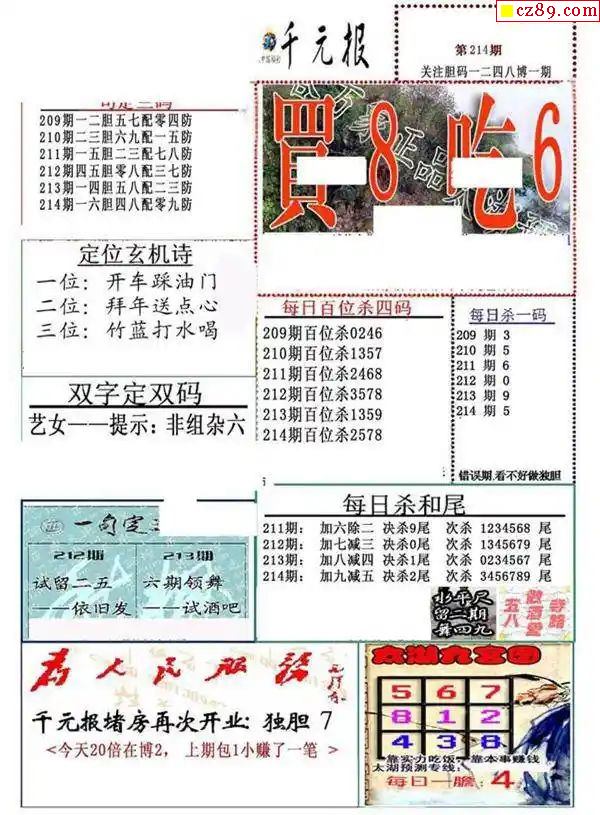 cz89.com
千元报
第214期
关注胆码一二四八博一期
209期一二胆五七配零四防
210期二三胆六九配一五防
211期一五胆二三配七八防
212期四五胆零八配三七防
213期一四胆五八配二三防
214期一六胆四八配零九防
買8吃6
定位玄机诗
一位：开车踩油门
二位：拜年送点心
三位：竹蓝打水喝
每日百位杀四码
209期百位杀0246
210期百位杀1357
211期百位杀2468
212期百位杀3578
213期百位杀1359
214期百位杀2578
每日杀一码
209 期 3
210 期 5
211 期 6
212 期 0
213 期 9
214 期 5
错误期,看不好做独胆
双字定双码
艺女——提示：非组杂六
一句定
212期
试留二五
——依旧发
213期
六期领舞
——试酒吧
每日杀和尾
211期： 加六除二 决杀9尾 次杀 1234568 尾
212期： 加七减三 决杀0尾 次杀 1345679 尾
213期： 加八减四 决杀1尾 次杀 0234567 尾
214期： 加九减五 决杀2尾 次杀 3456789 尾
留二期
舞四九
五八
为人民服务
千元报堵房再次开业:独胆 7
<今天20倍在博2， 上期包1小赚了一笔 >
太湖九宫图
5 6 7
8 1 2
4 3 8
靠实力吃饭，靠本事赚钱
太湖预测专线:
每日一胆: 4